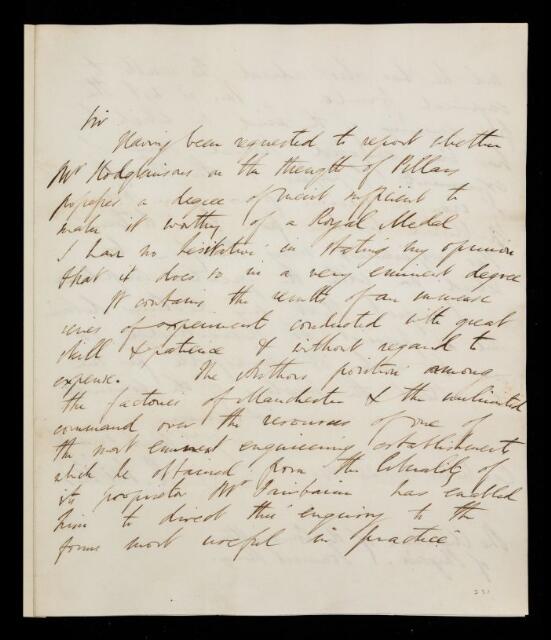 Sir
Having been requested to report whether
Mr Hodgkinsons on the Strength of Pillars
possesses a degree of merit sufficient to
make it worthy of a Royal Medal
I have no hesitation in stating my opinion
that it does so in a very eminent degree
It contains the results of an immense
series of experiment conducted with great
skill & patience & without regard to
expense. The Authors position among
the factories of Manchester & the unlimited
command over the resources of one of
the most eminent engineering establishments
which he obtained from the liberality of
its proprietor Mr Fairbairn has enabled
him to direct this enquiry to the
forms most useful in practice
231